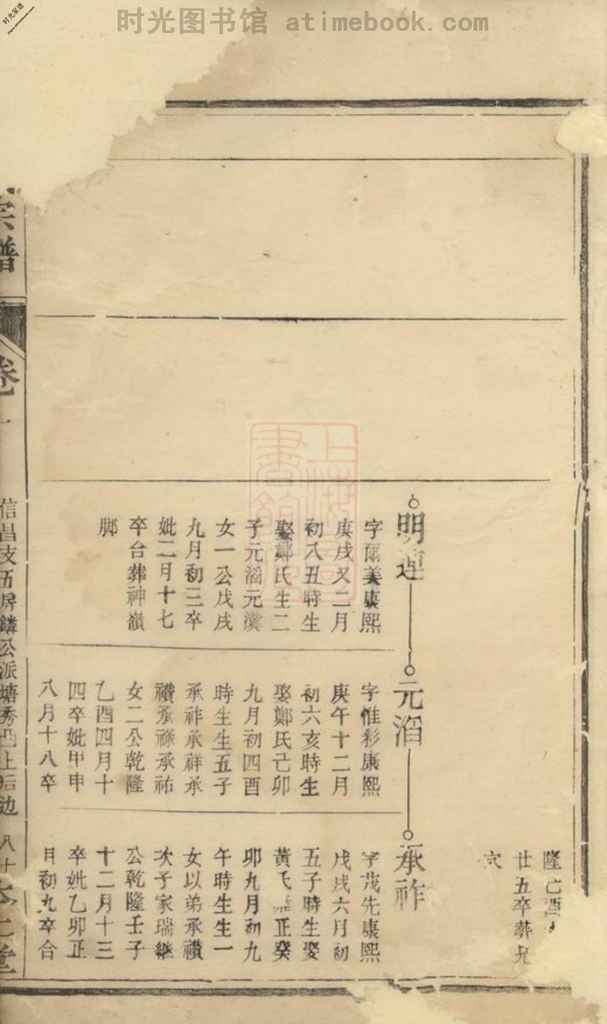 时光图书馆 atimebook.com
时光家谱
隆乙酉
廿五卒葬
明連
字爾美康熙
庚戌又二月
初八丑時生
娶鄭氏生二
子元滔元潢
女一公戊戌
九月初三卒
妣二月十七
卒合葬神嶺
脚
元滔
字惟彩康熙
庚午十二月
初六亥時生
娶鄭氏己卯
九月初四酉
時生生五子
承祚承祥承
禶承祿承祐
女二公乾隆
乙酉四月十
四卒妣甲申
八月十八卒
承祚
字茂先康熙
戊戌六月初
五子時生娶
黃氏雍正癸
卯九月初九
午時生生一
女以弟承禶
次子家瑞継
公乾隆壬子
十二月十三
卒妣乙卯正
月初九卒合
宗譜
卷
信昌支五房鏻公派塘秀凸上后边
八十
上海圖書館